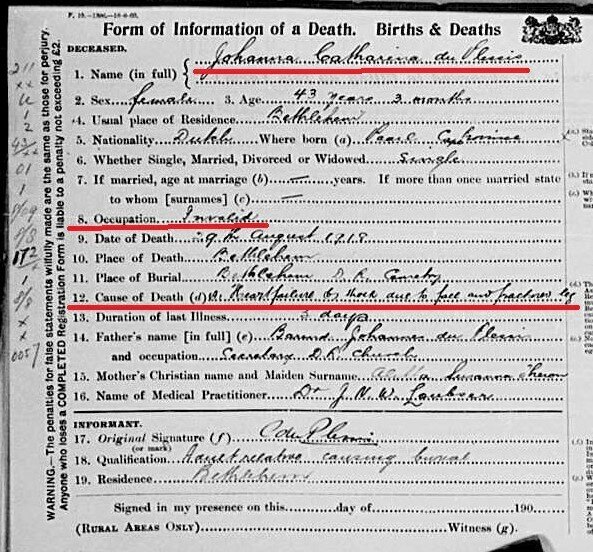 F. 10.
Form of Information of a Death. Births & Deaths
DECEASED.
1. Name (in full) Johanna Catharina du Plessis
2. Sex female 3. Age 43 years 3 months
4. Usual place of Residence Bethlehem
5. Nationality Dutch Where born (a) Paarl
6. Whether Single, Married, Divorced or Widowed Single
7. If married, age at marriage (b) — years. If more than one married state
to whom [surnames] (c) —
8. Occupation Invalid
9. Date of Death 9th August 1918
10. Place of Death Bethlehem
11. Place of Burial Bethlehem D. R. Cemetry
12. Cause of Death (d) Heartfailure by shock due to fall and fractured leg
13. Duration of last Illness 3 days
14. Father's name [in full] (e) Barend Johannes du Plessis
and occupation Secretary D.R. Church
15. Mother's Christian name and Maiden Surname Susanna
16. Name of Medical Practitioner Dr J. N. W. Loubser
INFORMANT.
17. Original Signature (f) C du Plessis
(or mark)
18. Qualification Adult relative causing burial
19. Residence Bethlehem
Signed in my presence on this day of 190
(RURAL AREAS ONLY) Witness (g).
WARNING.—The penalties for false statements wilfully made are the same as those for perjury.
Anyone who loses a COMPLETED Registration Form is liable to a penalty not exceeding £2.